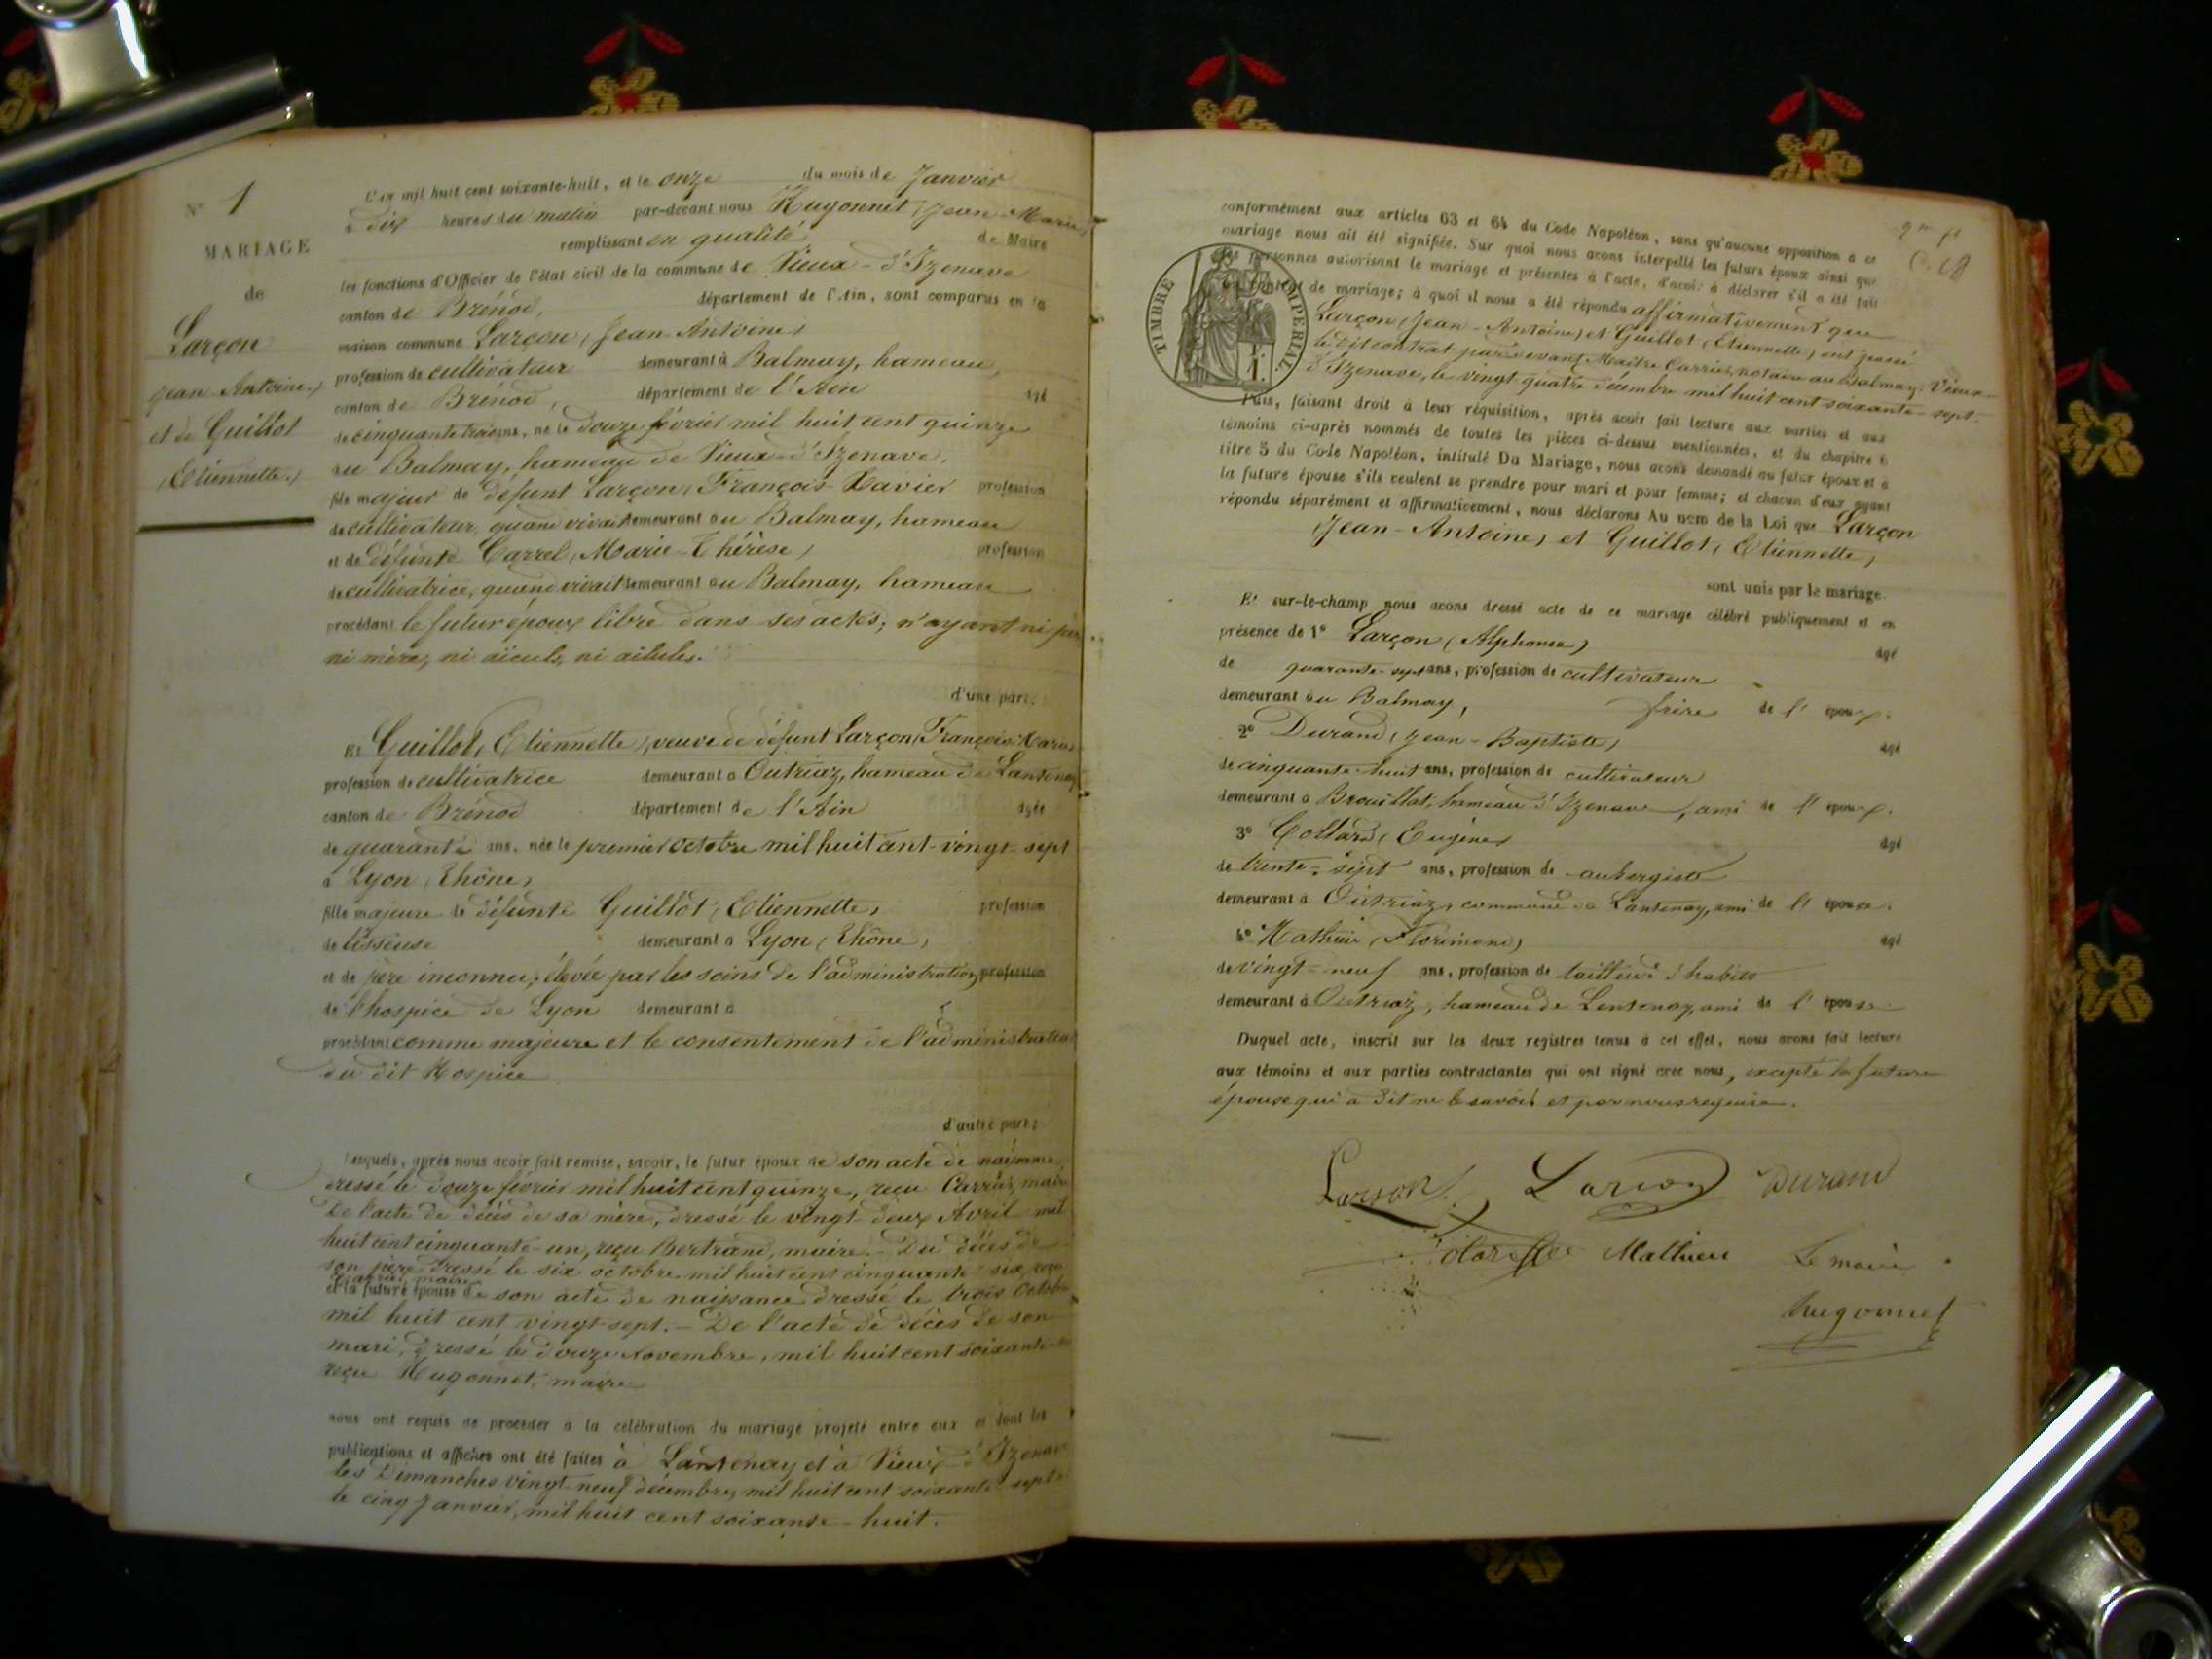 N° 1
MARIAGE
de
Larçon
(Jean Antoine,)
et de Guillot
(Etiennette.)
L'an mil huit cent soixante-huit, et le onze du mois de Janvier
à dix heures du matin par-devant nous Hugonnet (Jean-Marie)
remplissant en qualité de Maire
les fonctions d'Officier de l'état civil de la commune de Vieux-d'Izenave
canton de Brénod, département de l'Ain, sont comparus en la
maison commune Larçon (Jean-Antoine)
profession de cultivateur demeurant à Balmay, hameau,
canton de Brénod, département de l'Ain âgé
de cinquante trois ans, né le douze février mil huit cent quinze
au Balmay, hameau de Vieux-d'Izenave.
fils majeur de défunt Larçon, François-Xavier profession
de cultivateur, quand vivait demeurant au Balmay, hameau
et de défunte Carrel (Marie-Thérèse) profession
de cultivatrice, quand vivait demeurant au Balmay, hameau
procédant le futur époux libre dans ses actes; n'ayant ni père
ni mère, ni aïeuls, ni aïeules.
d'une part.
Et Guillot (Etiennette), veuve de défunt Larçon, François-Marie
profession de cultivatrice demeurant à Outriaz, hameau de Lantenay
canton de Brénod département de l'Ain âgée
de quarante ans, née le premier octobre mil huit cent-vingt-sept
à Lyon (Rhône)
fille majeure de défunte Guillot (Etiennette) profession
de tisseuse demeurant à Lyon (Rhône)
et de père inconnu; élevée par les soins de l'administration profession
de l'hospice de Lyon demeurant à
procédant comme majeure et le consentement de l'administration
du dit Hospice
d'autre part;
Lesquels, après nous avoir fait remise, savoir, le futur époux de son acte de naissance
dressé le douze février mil huit cent quinze, reçu Carrier, maire
De l'acte de décès de sa mère, dressé le vingt-deux Avril mil
huit cent cinquante-un, reçu Bertrand, maire. - Du décès de
son père dressé le six octobre mil huit cent cinquante-six, reçu
Carrier, maire
et la future épouse de son acte de naissance dressé le trois Octobre
mil huit cent vingt-sept. - De l'acte de décès de son
mari, dressé le douze Novembre, mil huit cent soixante
reçu Hugonnet, maire
nous ont requis de procéder à la célébration du mariage projeté entre eux et dont les
publications et affiches ont été faites à Lantenay et à Vieux-d'Izenave
les Dimanches vingt-neuf décembre, mil huit cent soixante-sept
le cinq Janvier, mil huit cent soixante-huit.
conformément aux articles 63 et 64 du Code Napoléon, sans qu'aucune opposition à ce
mariage nous ait été signifiée. Sur quoi nous avons interpellé les futurs époux ainsi que
les personnes autorisant le mariage et présentes à l'acte, d'avoir à déclarer s'il a été fait
un contrat de mariage; à quoi il nous a été répondu affirmativement que
Larçon (Jean-Antoine) et Guillot (Etiennette) ont passé
le dit contrat par devant Maître Carrier, notaire au Balmay, Vieux-
d'Izenave, le vingt-quatre décembre mil huit cent soixante-sept.
TIMBRE IMPERIAL
Puis, faisant droit à leur réquisition, après avoir fait lecture aux parties et aux
témoins ci-après nommés de toutes les pièces ci-dessus mentionnées, et du chapitre 6
titre 5 du Code Napoléon, intitulé Du Mariage, nous avons demandé au futur époux et à
la future épouse s'ils veulent se prendre pour mari et pour femme; et chacun d'eux ayant
répondu séparément et affirmativement, nous déclarons Au nom de la Loi que Larçon
(Jean-Antoine) et Guillot (Etiennette)
sont unis par le mariage.
Et sur-le-champ nous avons dressé acte de ce mariage célébré publiquement et en
présence de 1° Larçon (Alphonse) âgé
de quarante-sept ans, profession de cultivateur
demeurant au Balmay, frère de l'époux.
2° Durand (Jean-Baptiste) âgé
de cinquante-huit ans, profession de cultivateur
demeurant à Brouillat, hameau d'Izenave, ami de l'époux.
3° Collard (Eugène) âgé
de trente-sept ans, profession de aubergiste
demeurant à Outriaz, commune de Lantenay, ami de l'épouse.
4° Mathieu (Florimond) âgé
de vingt-neuf ans, profession de tailleur d'habits
demeurant à Outriaz, hameau de Lantenay, ami de l'épouse
Duquel acte, inscrit sur les deux registres tenus à cet effet, nous avons fait lecture
aux témoins et aux parties contractantes qui ont signé avec nous, excepté la future
épouse qui a dit ne le savoir et par nous requise.
Larson Larçon Durand
Mathieu Le maire
Hugonnet